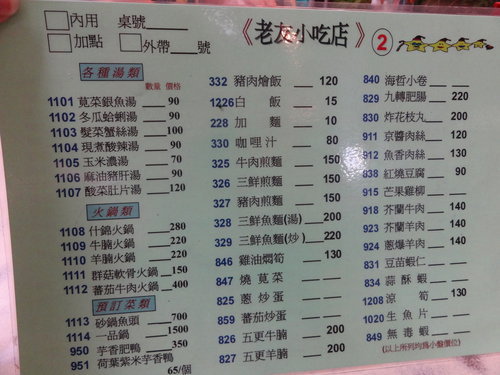 內用 桌號
加點 外帶 號
《老友小吃店》 2
各種湯類
數量 價格
1101 莧菜銀魚湯 90
1102 冬瓜蛤蜊湯 90
1103 髮菜蟹絲湯 100
1104 現煮酸辣湯 90
1105 玉米濃湯 70
1106 麻油豬肝湯 90
1107 酸菜肚片湯 120
火鍋類
1108 什錦火鍋 280
1109 牛腩火鍋 220
1110 羊腩火鍋 220
1111 群菇軟骨火鍋 150
1112 蕃茄牛肉火鍋 400
預訂菜類
1113 砂鍋魚頭 700
1114 一品鍋 1500
950 芋香肥鴨 350
951 荷葉紫米芋香鴨
65/個
332 豬肉燴飯 120
1226 白飯 15
228 加麵 10
330 咖哩汁 80
325 牛肉煎麵 150
326 三鮮煎麵 150
327 豬肉煎麵 150
328 三鮮魚麵(湯) 200
329 三鮮魚麵(炒) 220
846 雞油燜筍 130
847 燒莧菜
825 蔥炒蛋
859 蕃茄炒蛋
826 五更牛腩 200
827 五更羊腩 200
840 海哲小卷
829 九轉肥腸 220
830 炸花枝丸 200
911 京醬肉絲 130
912 魚香肉絲 130
838 紅燒豆腐 90
915 芒果雞柳
918 芥蘭牛肉 140
923 芥蘭羊肉 140
924 蔥爆羊肉 140
831 豆苗蝦仁
834 蒜酥蝦
1208 涼筍 130
1020 生魚片
849 無毒蝦
(以上所列均為小盤價位)